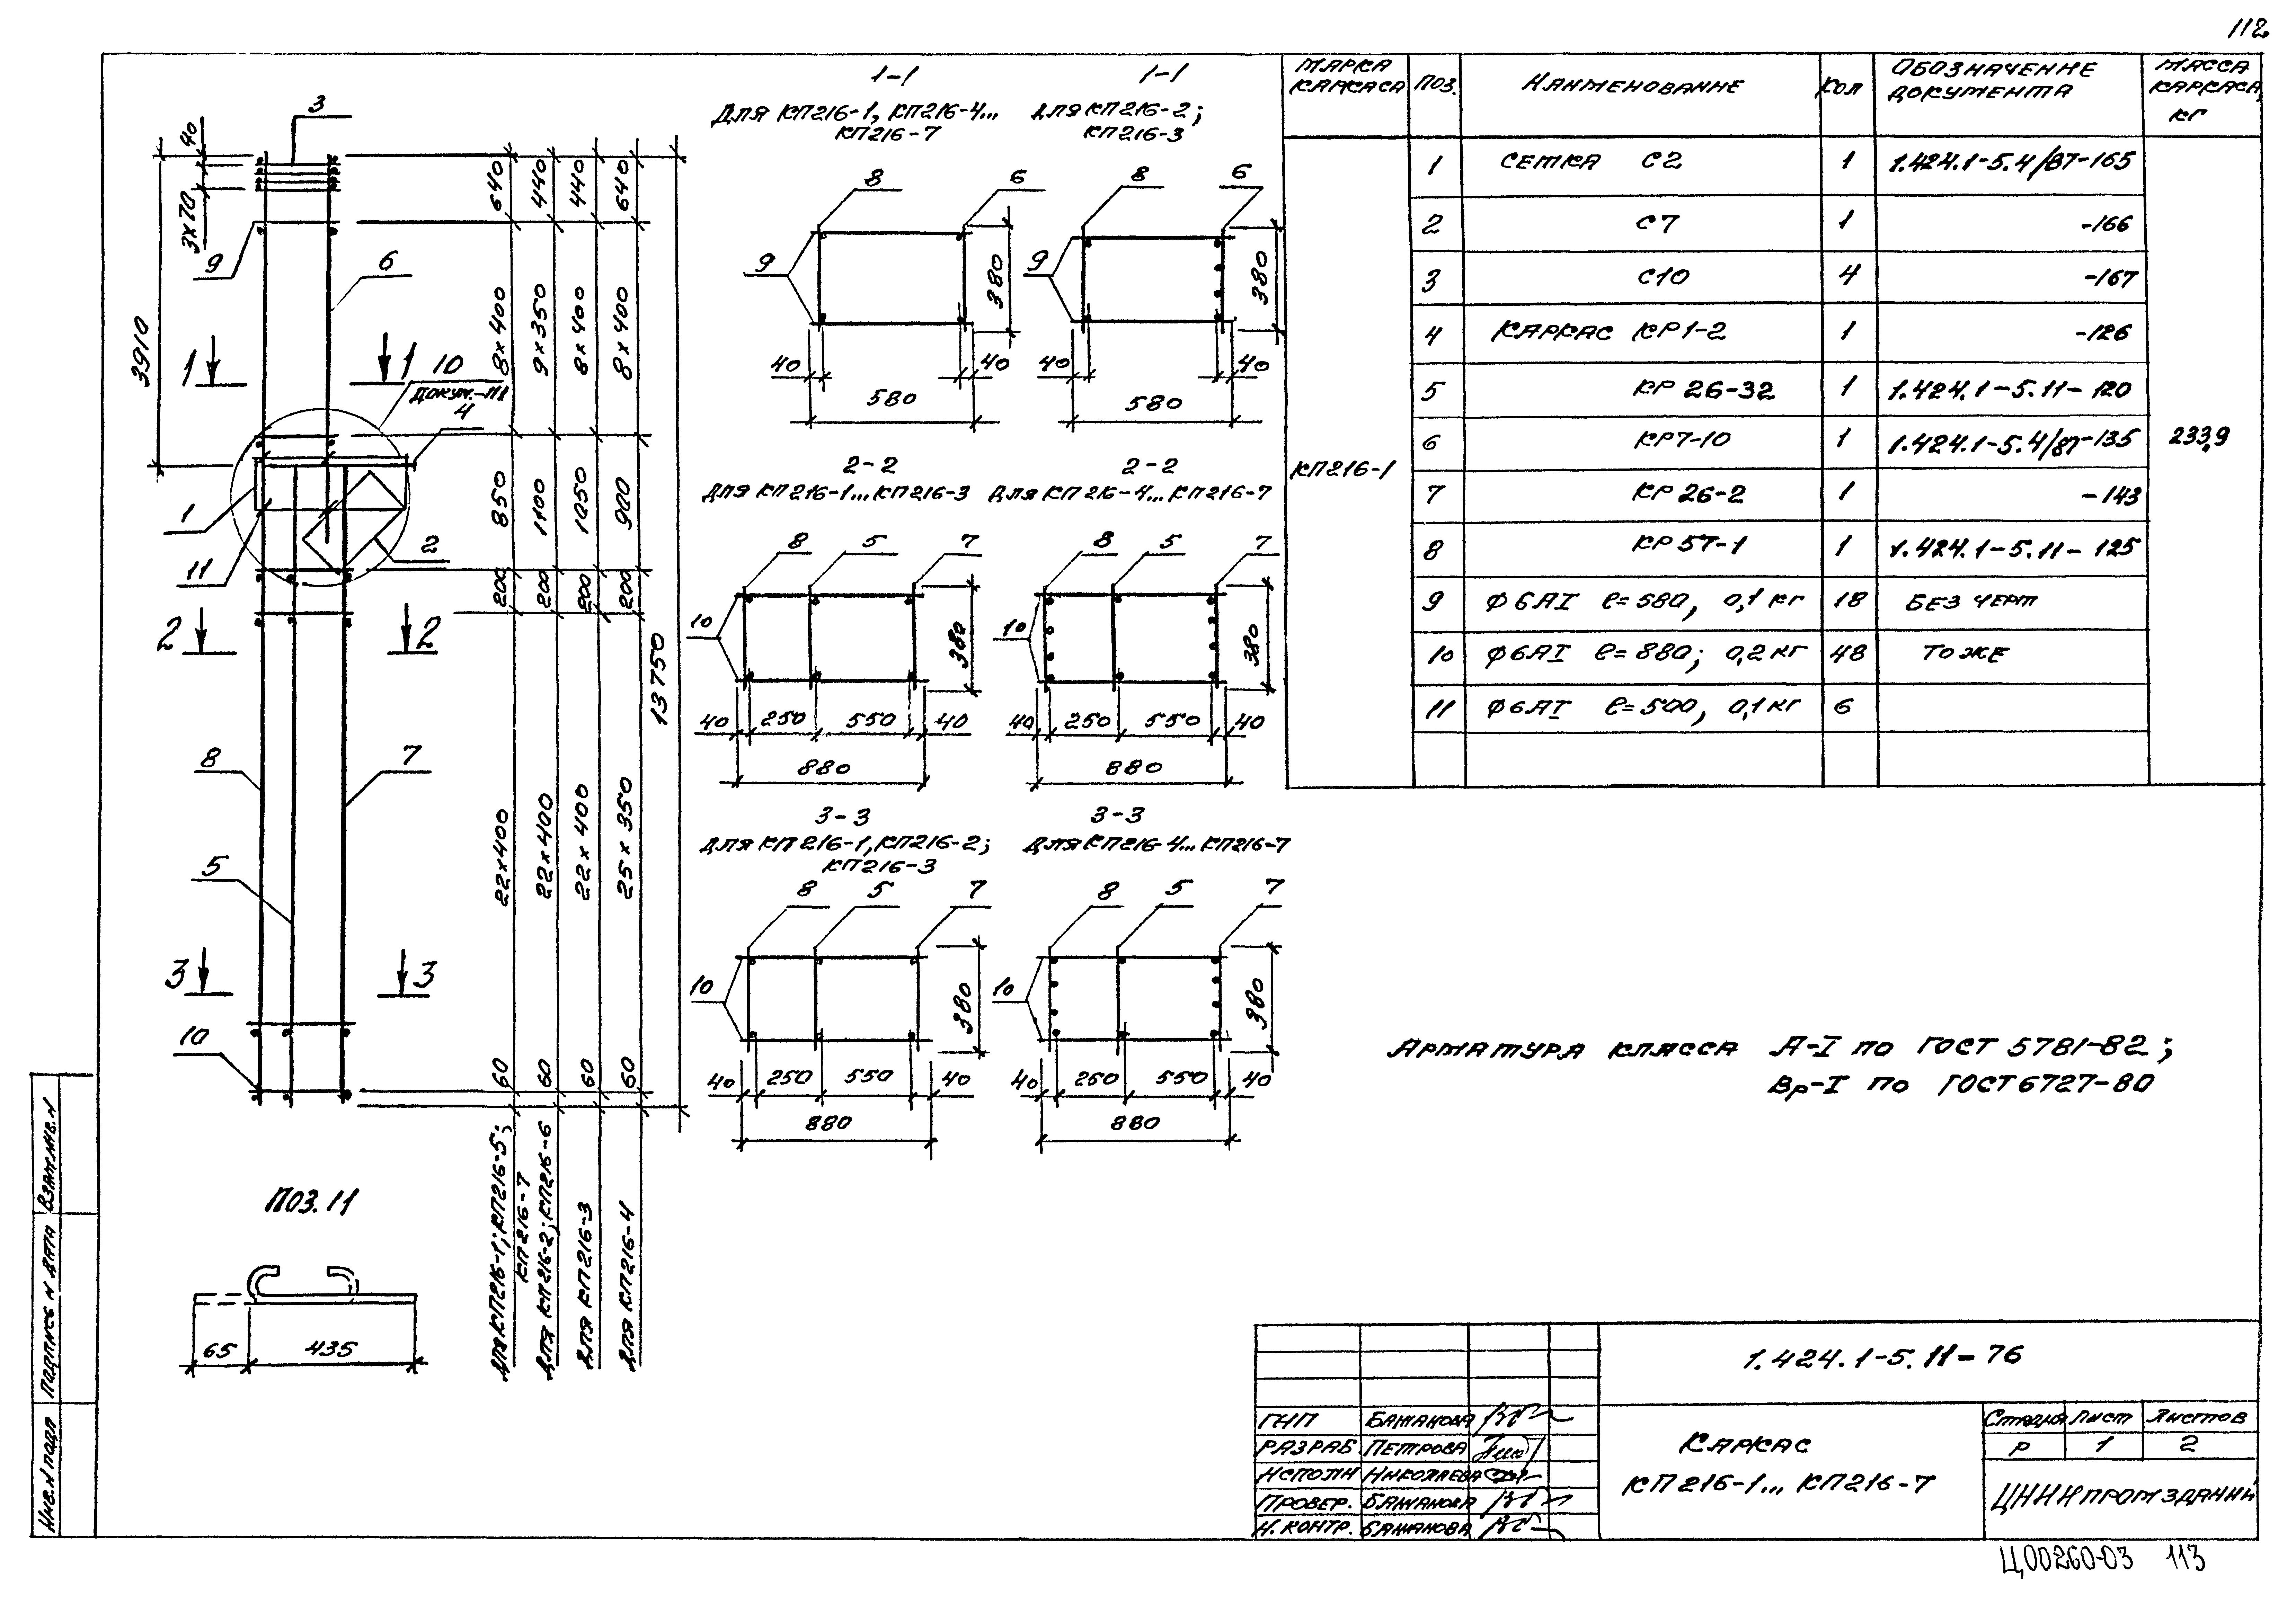 112
1-1
Для КП216-1, КП216-4...
КП216-7
1-1
Для КП216-2;
КП216-3
8
6
9
380
40
40
580
8
6
9
380
40
40
580
2-2
Для КП216-1...КП216-3
2-2
Для КП216-4...КП216-7
8
5
7
10
380
40
250
550
40
880
8
5
7
10
380
40
250
550
40
880
3-3
Для КП216-1, КП216-2;
КП216-3
3-3
Для КП216-4...КП216-7
8
5
7
10
380
40
250
550
40
880
8
5
7
10
380
40
250
550
40
880
3
40
3х70
9
6
3910
1
1
10
Докум.-111
4
1
11
2
2
2
8
7
5
3
3
10
640
440
440
640
8х400
9х350
8х400
8х400
850
1100
1050
900
200
200
200
200
22х400
22х400
22х400
25х350
60
60
60
60
13750
Для КП216-1; КП216-5;
КП216-7
Для КП216-2; КП216-6
Для КП216-3
Для КП216-4
Поз. 11
65
435
Марка каркаса
Поз.
Наименование
Кол
Обозначение документа
Масса каркаса, кг
КП216-1
233,9
1 Сетка С2 1 1.424.1-5.4/87-165
2 С7 1 -166
3 С10 4 -167
4 Каркас КР1-2 1 -126
5 КР 26-32 1 1.424.1-5.11-120
6 КР7-10 1 1.424.1-5.4/87-135
7 КР 26-2 1 -143
8 КР 57-1 1 1.424.1-5.11-125
9 Ф6АI ℓ=580, 0,1 кг 18 Без черт
10 Ф6АI ℓ=880; 0,2 кг 48 То же
11 Ф6АI ℓ=500, 0,1 кг 6
Арматура класса А-I по ГОСТ 5781-82;
Вр-I по ГОСТ 6727-80
1.424.1-5.11-76
ГИП Бажанова
Разраб Петрова
Исполн Николаева
Провер. Бажанова
Н. контр. Бажанова
Каркас
КП216-1... КП216-7
Стадия Лист Листов
Р 1 2
ЦНИИпромзданий
Инв. N подл Подпись и дата Взам. инв. N
Ц00260-03 113